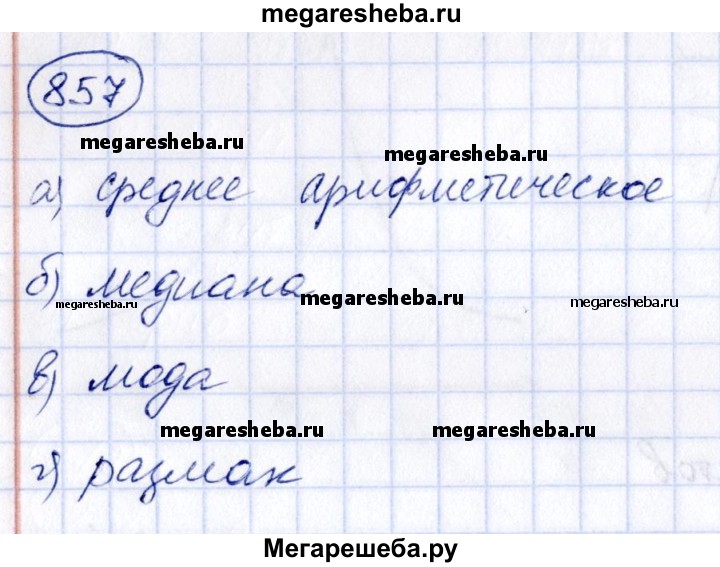 megaresheba.ru
857
megaresheba.ru
megaresheba.ru
а) среднее арифметическое
б) медиана
megaresheba.ru
megaresheba.ru
megaresheba.ru
в) мода
megaresheba.ru
megaresheba.ru
г) размах
Мегарешеба.ру